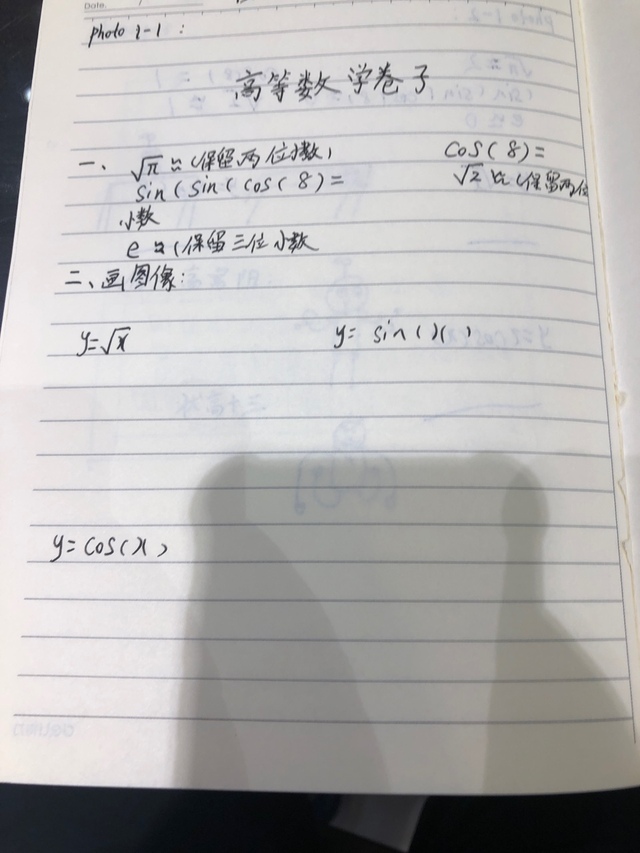 Date.
photo 1-1 :
高等数学卷子
一、 √π ≈ (保留两位小数) cos(8)=
sin(sin(cos(8)= √2 ≈ (保留两位
小数
e ≈ (保留三位小数
二、画图像:
y=√x y= sin(x)
y= cos(x)